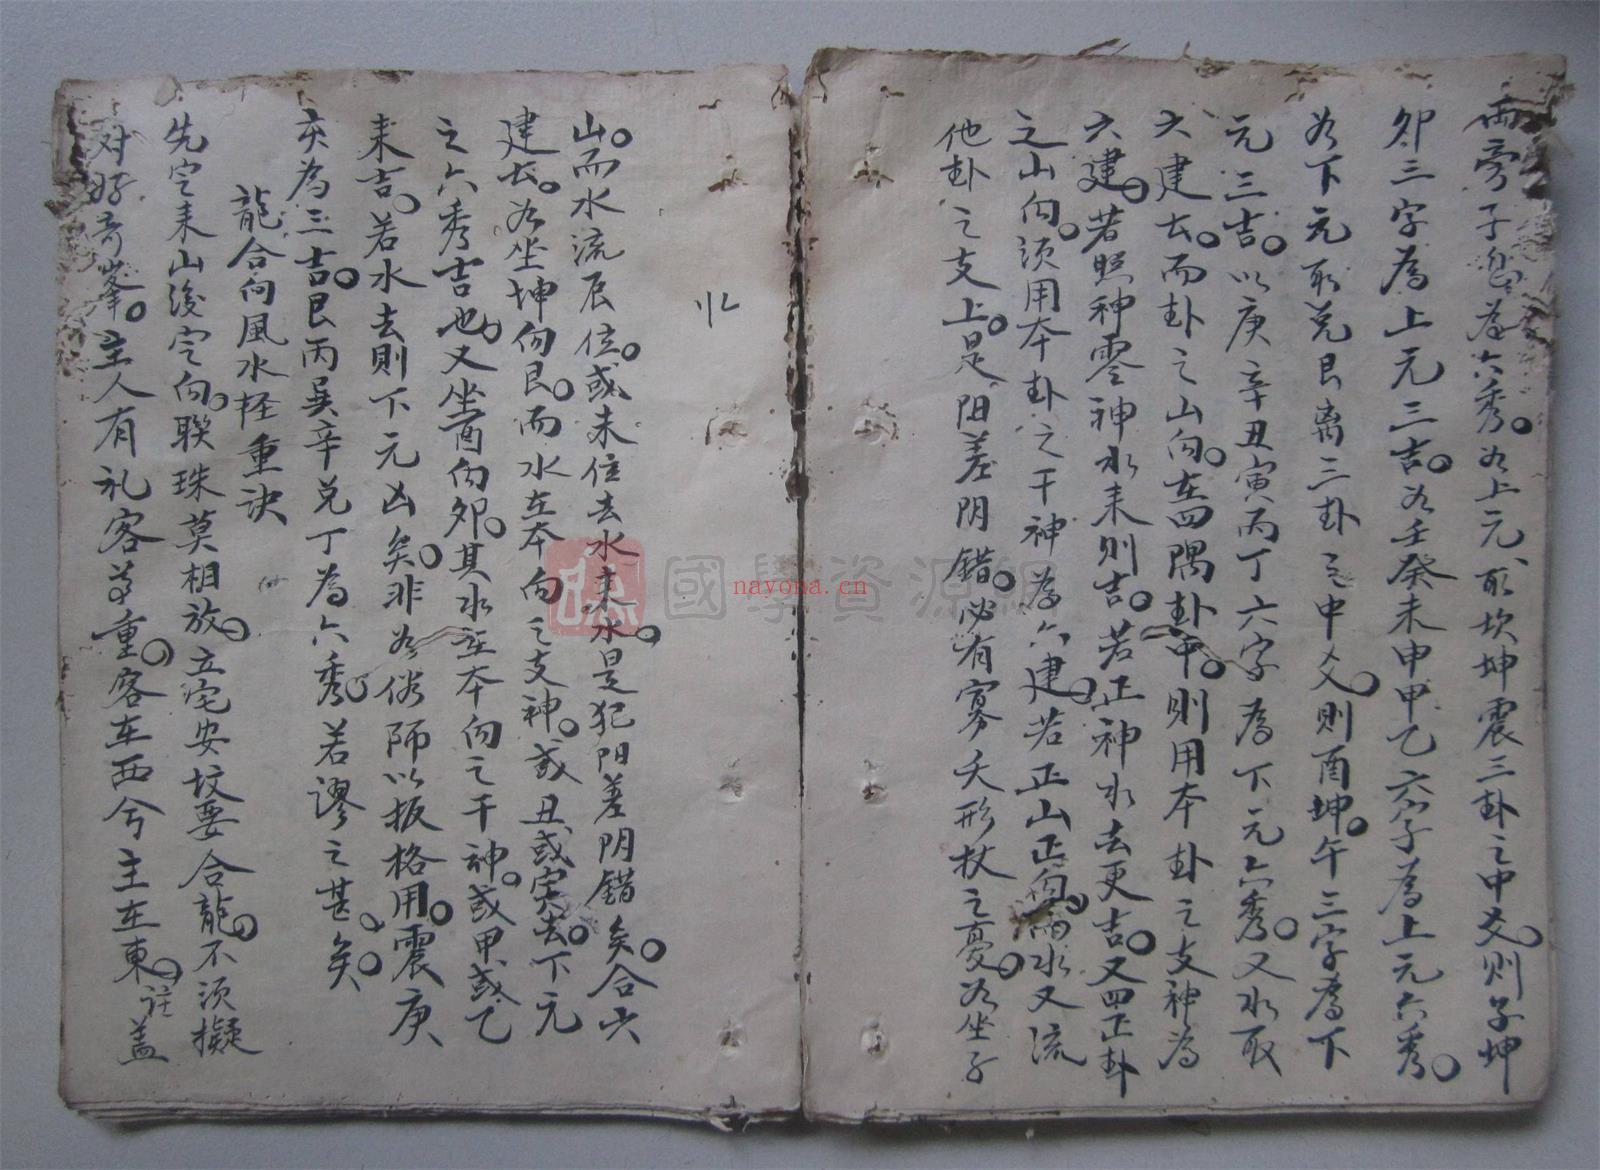 両旁子息為六秀。如上元、取坎坤震三卦之中爻。則子坤
卯三字為上元三吉。如壬癸未申甲乙六字為上元六秀。
如下元取兌艮离三卦之中爻。則酉坤。午三字為下
元三吉。以庚辛丑寅丙丁六字為下元六秀。又水取
六建去。而卦之山向。在四隅卦中。則用本卦之支神為
六建。若照神零神水来則吉。若正神水去更吉。又四正卦
之山向。須用本卦之干神為六建。若正山正向。而水又流
他卦之支上。是陽差阴錯。必有寡夭形杖之憂。如坐子
山。而水流辰位。或未位去水来水。是犯陽差阴錯矣。合六
建去。如坐坤向艮。而水在本向之支神。或丑、或寅去。下元
之六秀吉也。又坐酉向卯。其水在本向之干神。或甲、或乙
来吉。若水去則下元凶矣。非如俗師以板格用。震庚
亥為三吉。艮丙巽辛兌丁為六秀。若謬之甚。矣。
龍合向風水経重訣
先定来山後定向。聯珠莫相放。立宅安坟要合龍。不須擬
对好奇峯。主人有礼客尊重。客在西兮主在東。註盖
國學資源網
nayona.cn